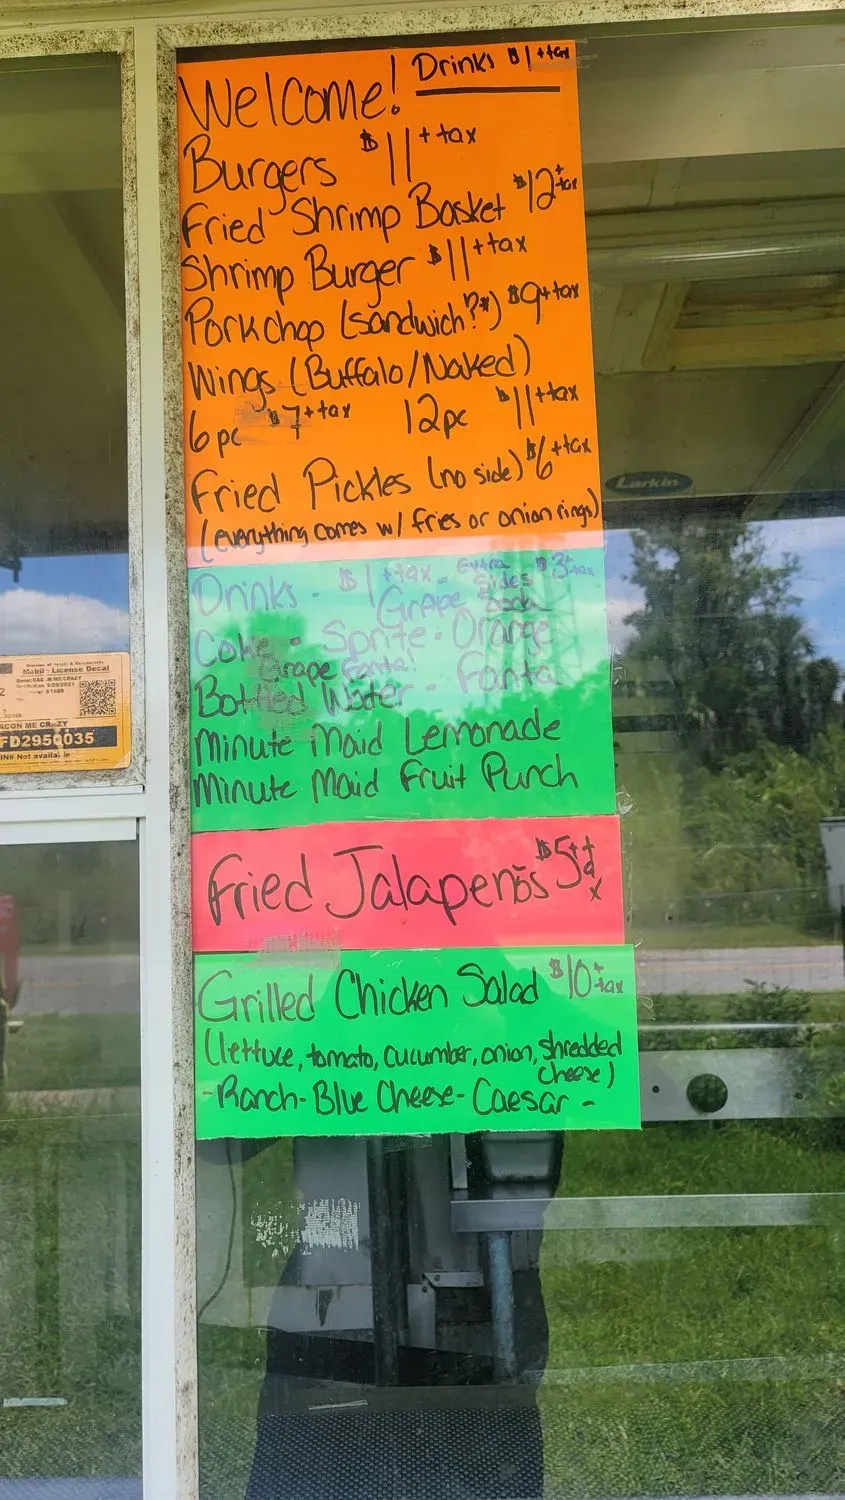 Welcome! Drinks $1 + tax
Burgers $11 + tax
Fried Shrimp Basket $12 + tax
Shrimp Burger $11 + tax
Porkchop (sandwich?*) $9 + tax
Wings (Buffalo/Naked)
6pc $7 + tax 12pc $11 + tax
Fried Pickles (no side) $6 + tax
(everything comes w/ fries or onion rings)
Drinks - $1 + tax - Extra Sides $3 + tax
Grape Soda
Coke - Sprite - Orange
Grape Fanta
Bottled Water - Fanta
Minute Maid Lemonade
Minute Maid Fruit Punch
Fried Jalapeños $5 + tax
Grilled Chicken Salad $10 + tax
(lettuce, tomato, cucumber, onion, shredded
cheese)
- Ranch - Blue Cheese - Caesar -
Larkin
Division of Hotels & Restaurants
Mobile License Decal
BACON ME CRAZY
FD2950035